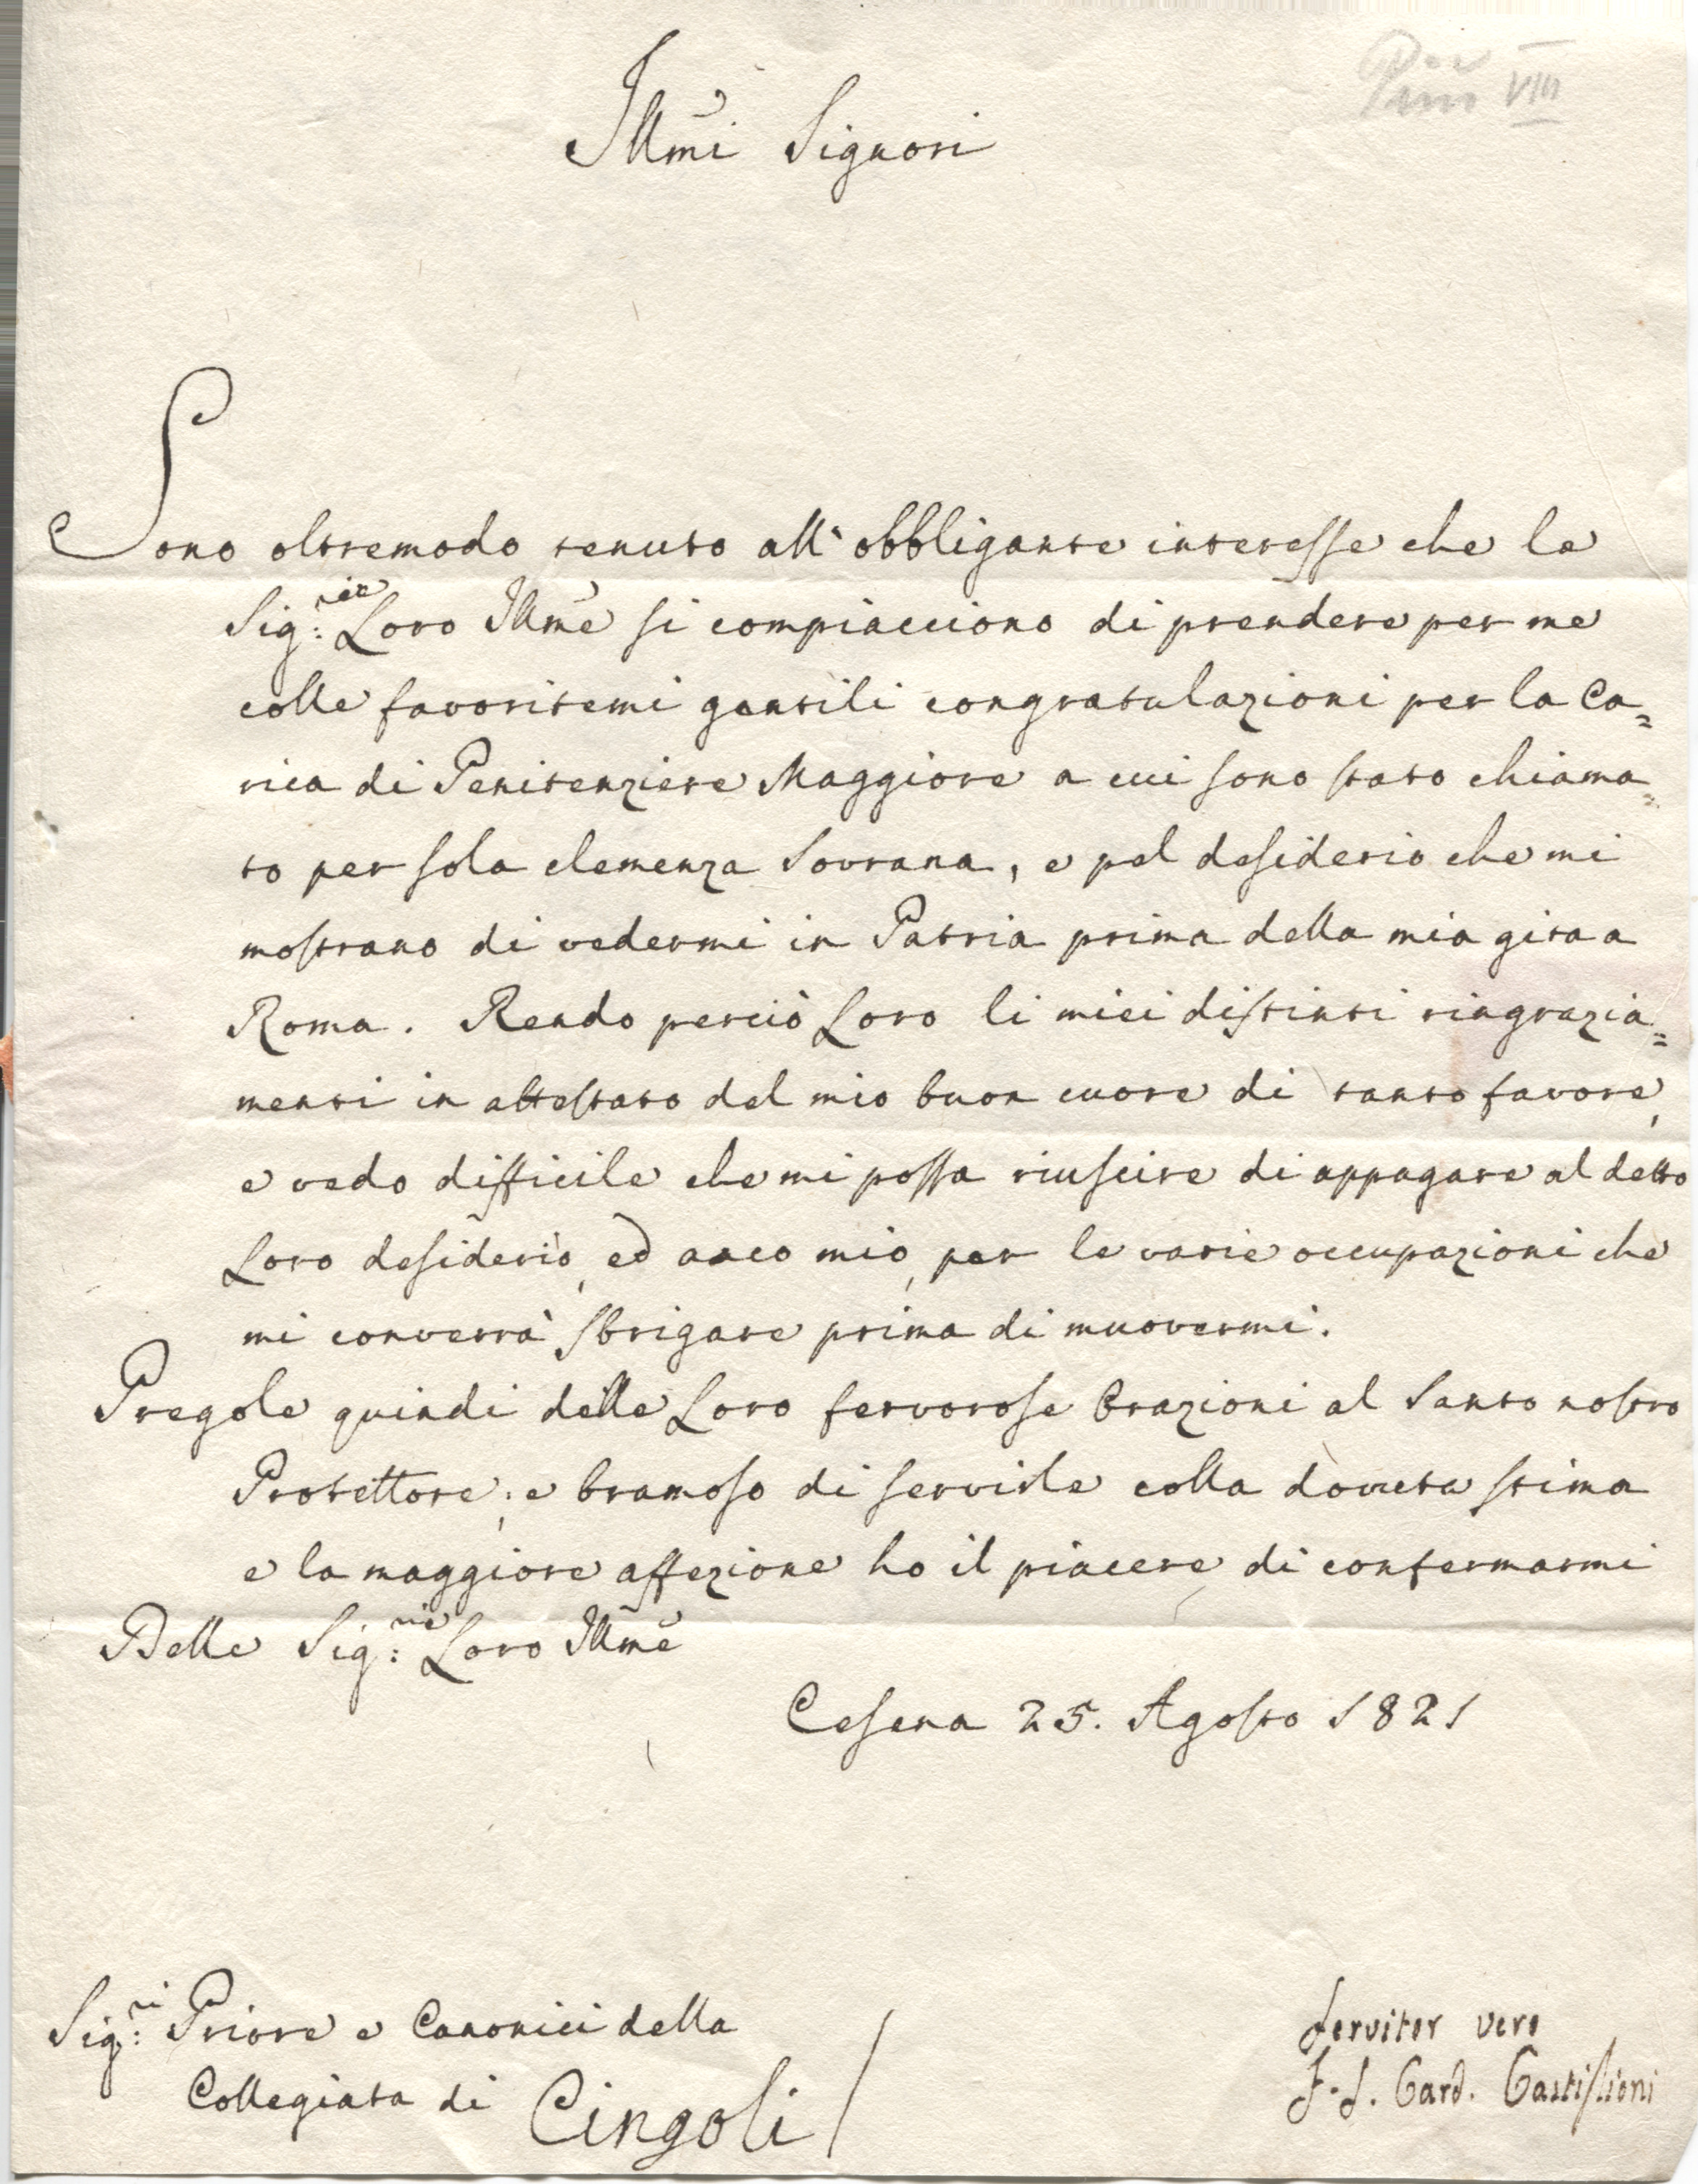 Pius VIII
Illm̃i Signori
Sono oltremodo tenuto all' obbligante interesse che le
Sig:rie Loro Illm̃e si compiacciono di prendere per me
colle favoritemi gentili congratulazioni per la Ca=
rica di Penitenziere Maggiore a cui sono stato chiama=
to per sola clemenza Sovrana, e pel desiderio che mi
mostrano di vedermi in Patria prima della mia gita a
Roma. Rendo perciò Loro li miei distinti ringrazia=
menti in attestato del mio buon cuore di tanto favore,
e vedo difficile che mi possa riuscire di appagare al detto
Loro desiderio, ed anco mio, per le varie occupazioni che
mi converrà sbrigare prima di muovermi.
Pregole quindi delle Loro fervorose Orazioni al Santo nostro
Protettore; e bramoso di servirle colla dovuta stima
e la maggiore affezione ho il piacere di confermarmi
Delle Sig:rie Loro Illm̃e
Cesena 25. Agosto 1821
Sig:ri Priore e Canonici della
Collegiata di Cingoli /
Servitor vero
F. S. Card. Castiglioni